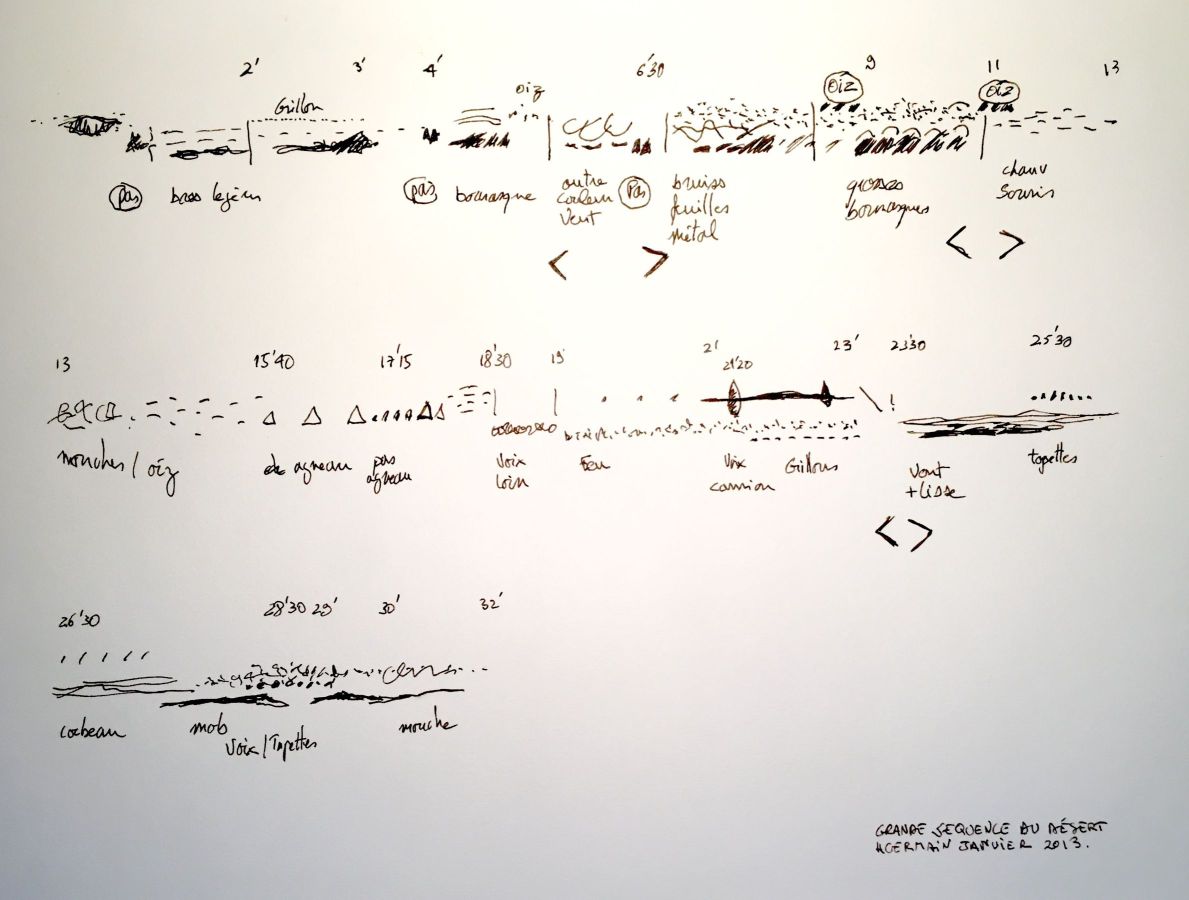 2' 3' 4' 6'30 9 11 13
oiz oiz oiz
Grillon
pas pas bourrasque autre pas bruiss grosses chauv
couleur feuilles bourrasques souris
vent métal
< > < >
13 15'40 17'15 18'30 19' 21' 23' 23'30 25'30
21'20
!
mouches / oiz agneau pas voix Feu Voix Grillons Vent tapettes
agneau loin camion + lisse
< >
26'30 28'30 29' 30' 32'
corbeau mob mouche
Voix / Tapettes
GRANDE SEQUENCE DU DÉSERT
HGERMAIN JANVIER 2013.